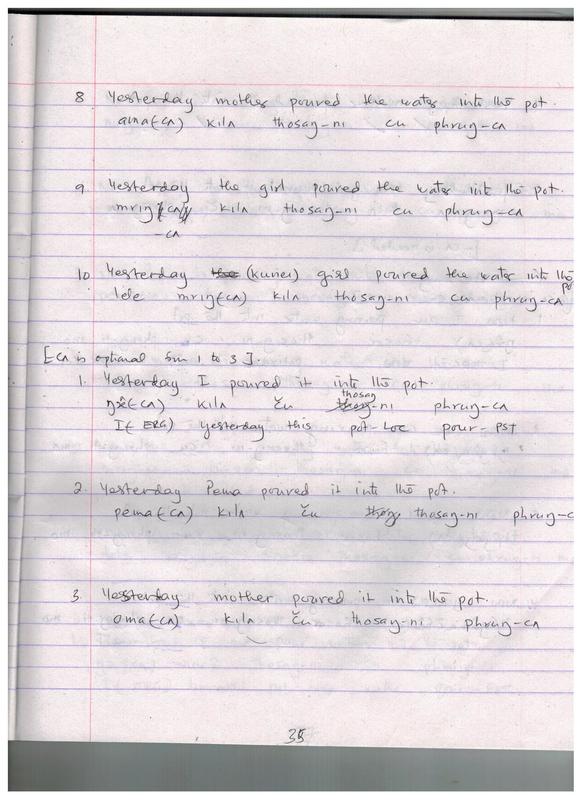 8 Yesterday mother poured the water into the pot.
ama(cʌ) kilʌ thosaŋ-ni cu phruŋ-cʌ
9. Yesterday the girl poured the water into the pot.
mriŋ kilʌ thosaŋ-ni cu phruŋ-cʌ
-cʌ
10. Yesterday (kunei) girl poured the water into the
mriŋ(cʌ) kilʌ thosaŋ-ni cu phruŋ-cʌ
[cʌ is optional from 1 to 3].
1. Yesterday I poured it into the pot.
thosaŋ
(cʌ) kilʌ ču -ni phruŋ-cʌ
I(ERG) yesterday this pot-LOC pour-PST
2. Yesterday Pema poured it into the pot.
pema(cʌ) kilʌ ču thosaŋ-ni phruŋ-c
3. Yesterday mother poured it into the pot.
ama(cʌ) kilʌ ču thosaŋ-ni phruŋ-cʌ
35